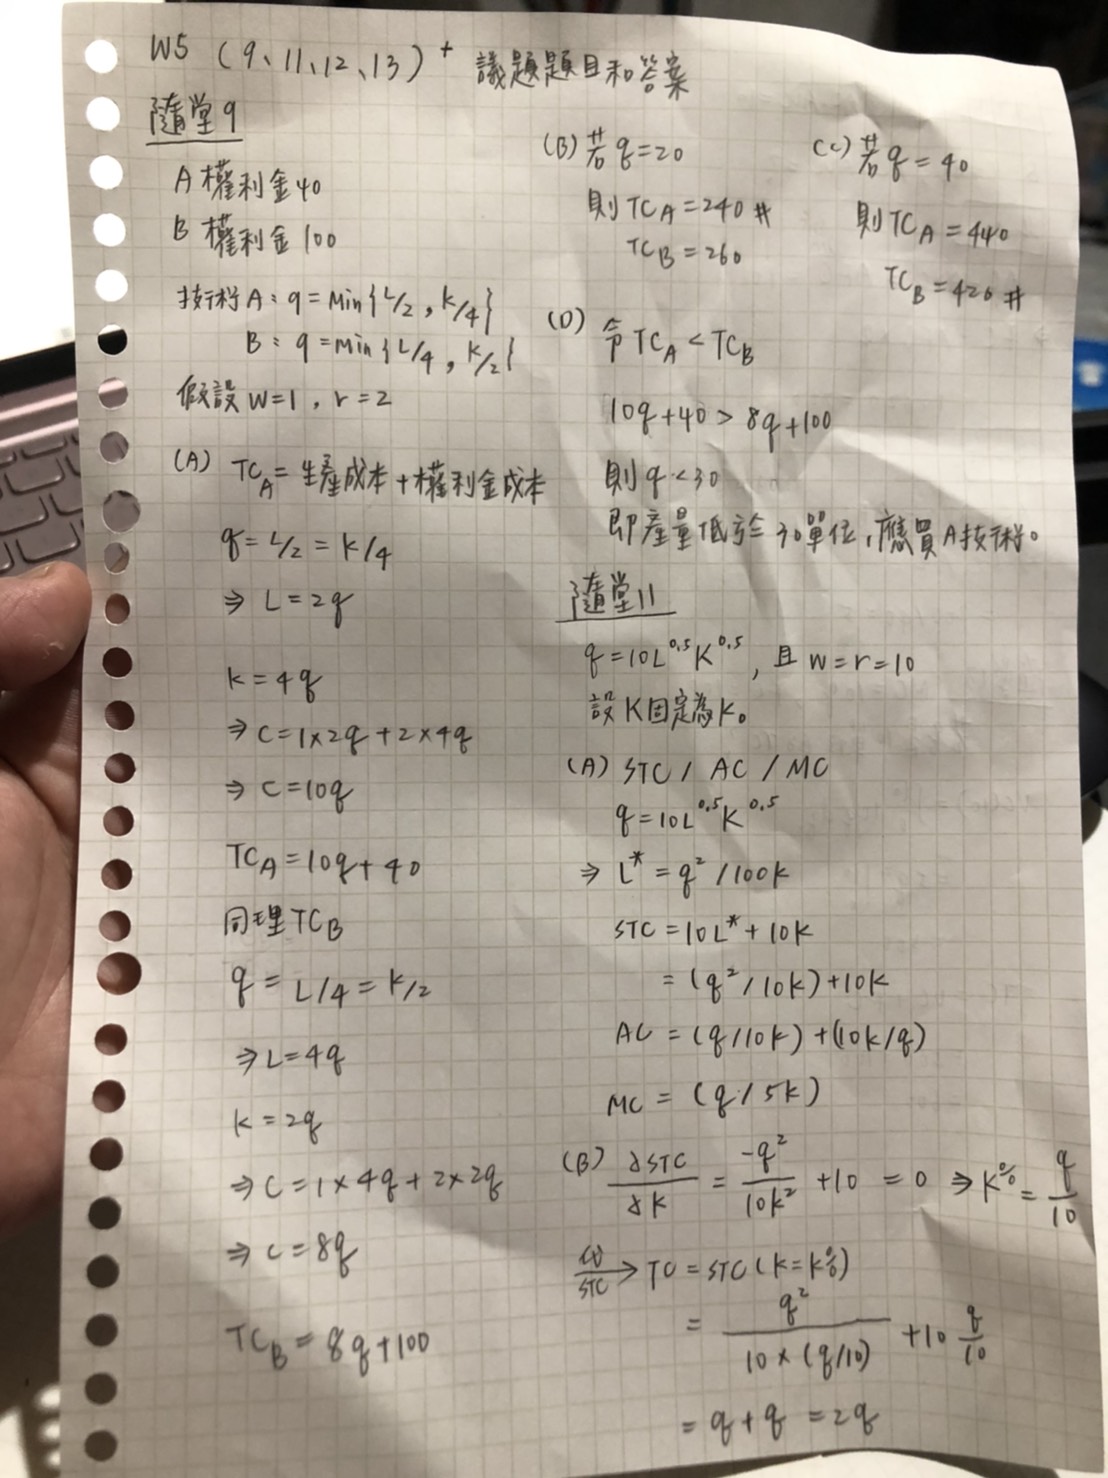 W5 (9、11、12、13) + 議題題目和答案
隨堂9
A 權利金40
B 權利金100
技術A：q=Min{L/2, K/4}
B：q=Min{L/4, K/2}
假設 W=1, r=2
(A) TC_A = 生產成本+權利金成本
q=L/2=K/4
⇒ L=2q
K=4q
⇒ C=1×2q+2×4q
⇒ C=10q
TC_A=10q+40
同理TC_B
q=L/4=K/2
⇒L=4q
K=2q
⇒C=1×4q+2×2q
⇒ C=8q
TC_B=8q+100
(B) 若q=20
則TC_A=240 #
TC_B=260
(C) 若q=40
則TC_A=440
TC_B=420 #
(D) 令TC_A<TC_B
10q+40>8q+100
則q<30
即產量低於30單位,應買A技術。
隨堂11
q=10L^0.5 K^0.5, 且 w=r=10
設K固定為K。
(A) STC / AC / MC
q=10L^0.5 K^0.5
⇒ L*=q²/100K
STC=10L*+10K
=(q²/10K)+10K
AC=(q/10K)+(10K/q)
MC=(q/5K)
(B) ∂STC/∂K = -q²/10K² +10 =0 ⇒K%=q/10
代回/STC → TC=STC(K=K%)
= q²/10×(q/10) +10 q/10
=q+q=2q